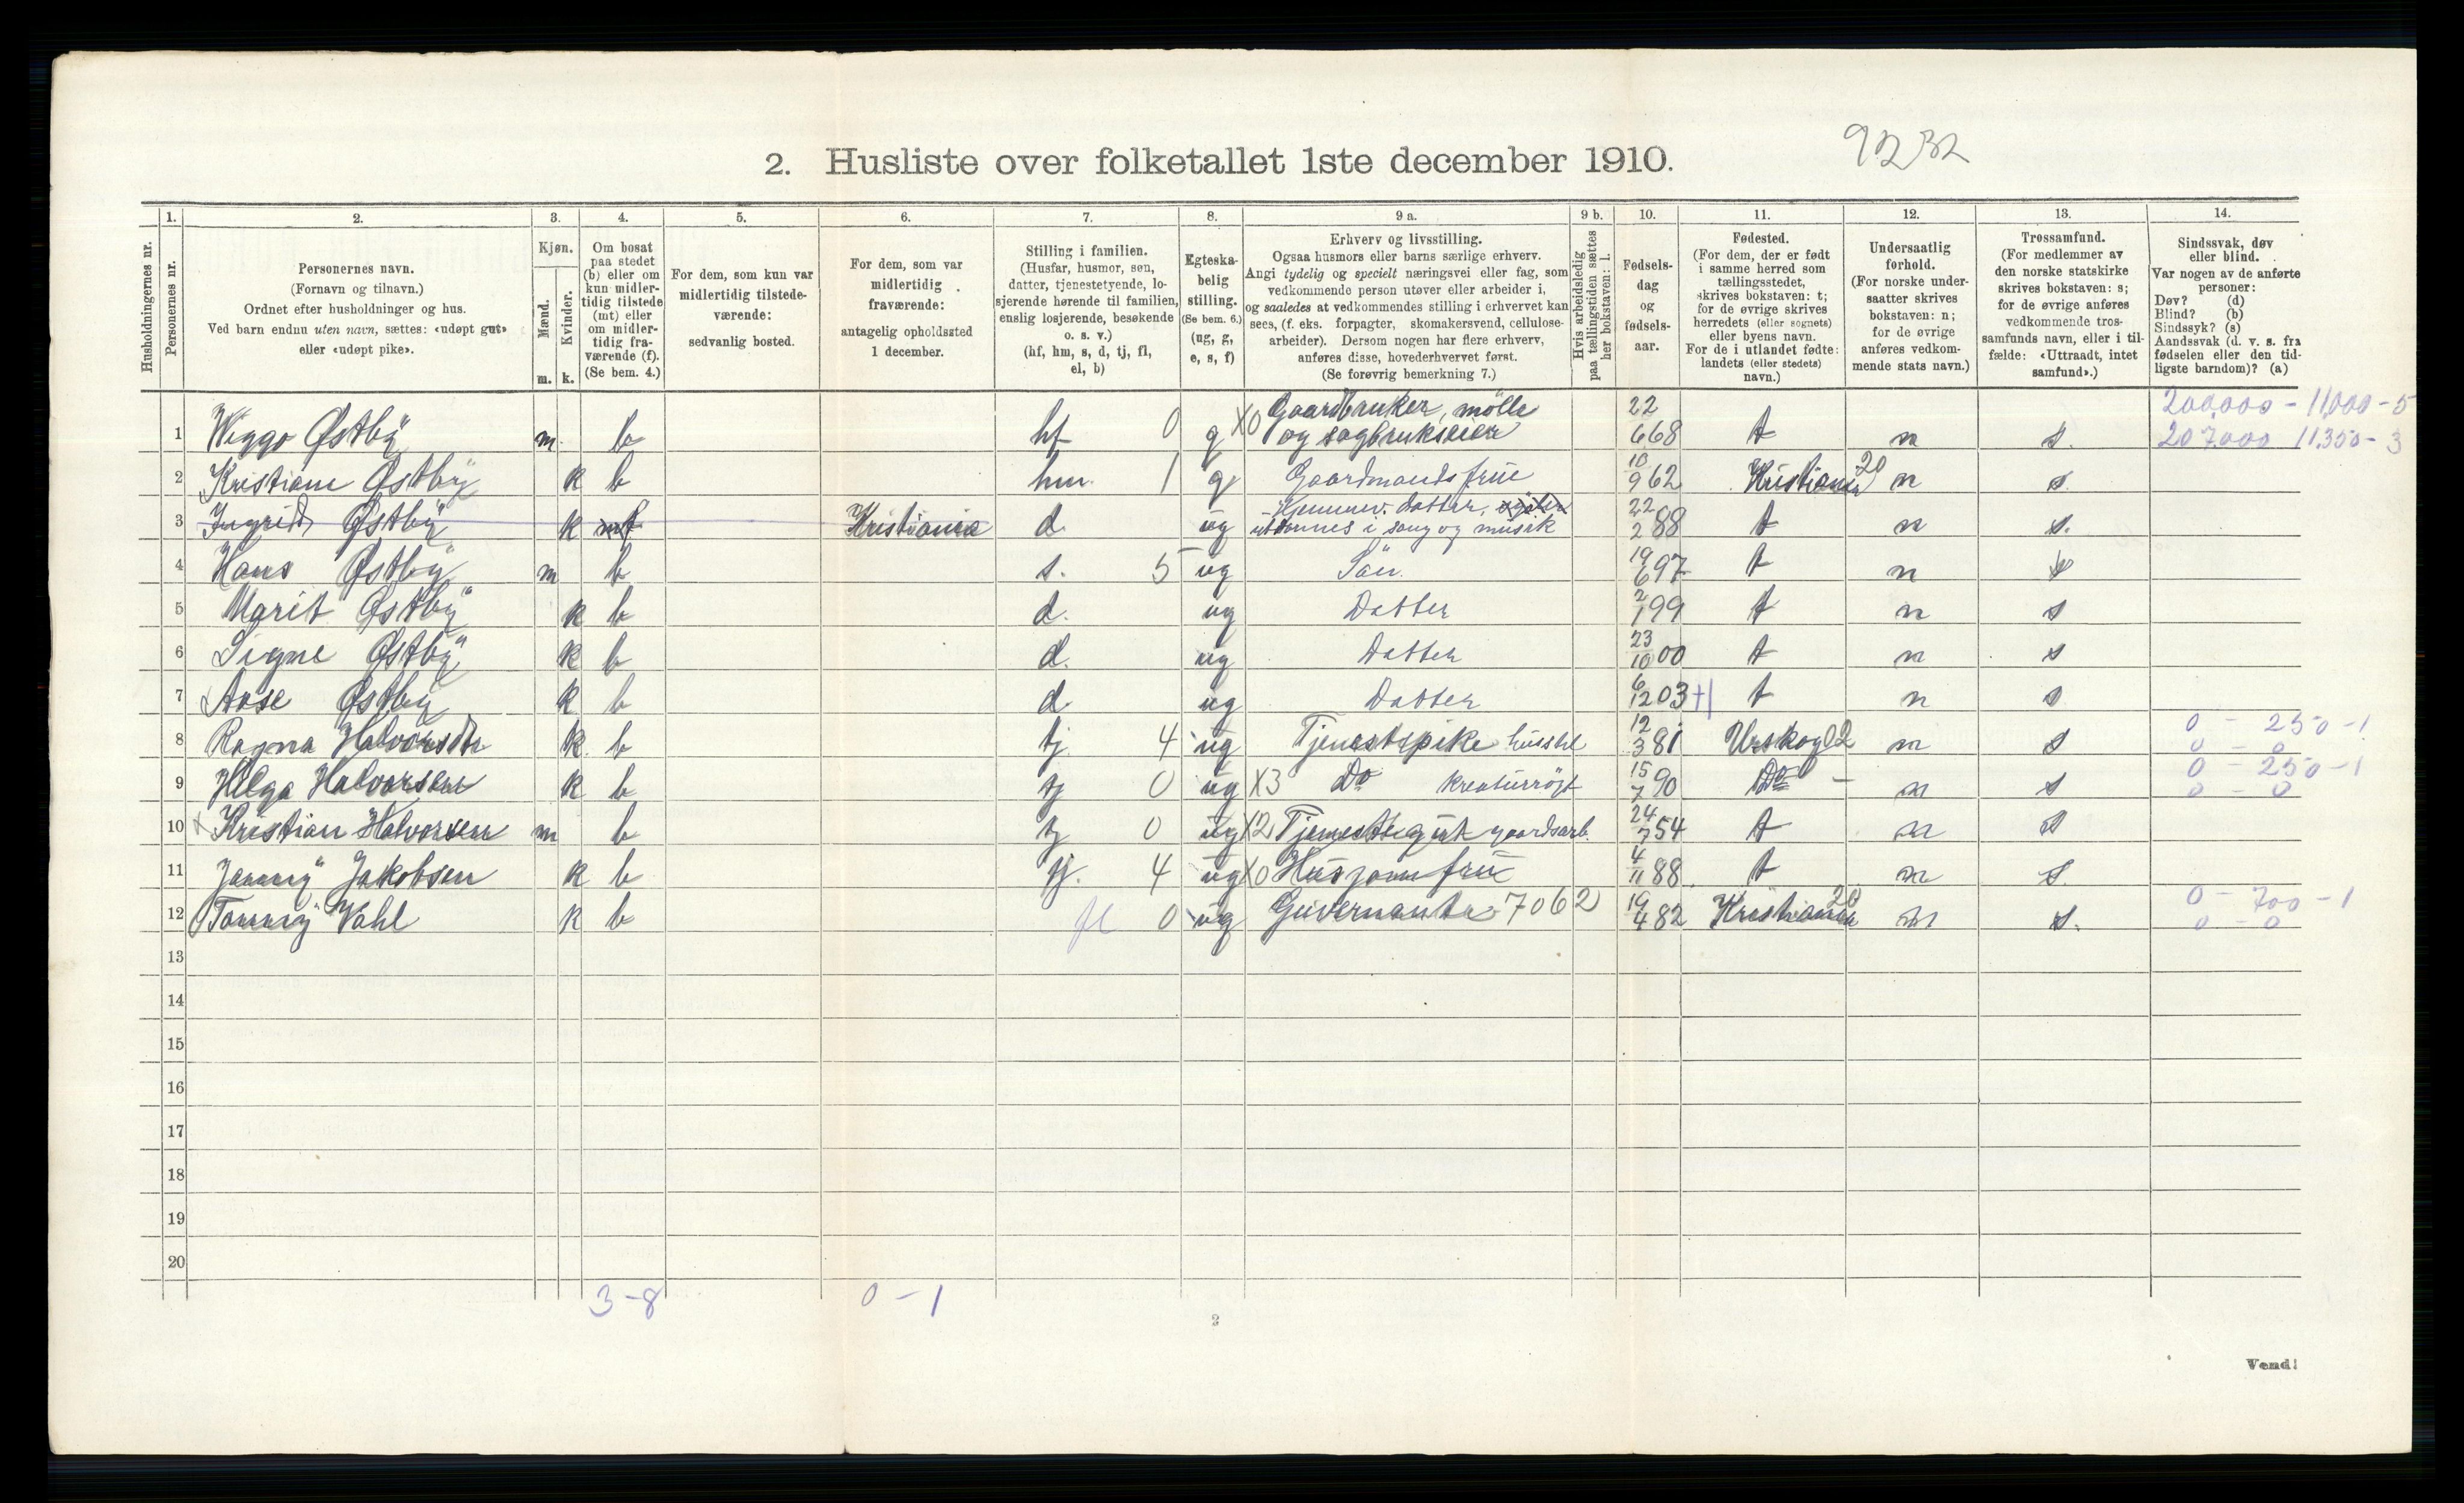 9232
2. Husliste over folketallet 1ste december 1910.
Husholdningernes nr.
1. Personernes nr.
2. Personernes navn.
(Fornavn og tilnavn.)
Ordnet efter husholdninger og hus.
Ved barn endnu uten navn, sættes: «udøpt gut»
eller «udøpt pike».
3. Kjøn.
Mænd. m.
Kvinder. k.
4. Om bosat
paa stedet
(b) eller om
kun midler-
tidig tilstede
(mt) eller
om midler-
tidig fra-
værende (f).
(Se bem. 4.)
5. For dem, som kun var
midlertidig tilstede-
værende:
sedvanlig bosted.
6. For dem, som var
midlertidig
fraværende:
antagelig opholdssted
1 december.
7. Stilling i familien.
(Husfar, husmor, søn,
datter, tjenestetyende, lo-
sjerende hørende til familien,
enslig losjerende, besøkende
o. s. v.)
(hf, hm, s, d, tj, fl,
el, b)
8. Egteska-
belig
stilling.
(Se bem. 6.)
(ug, g,
e, s, f)
9 a. Erhverv og livsstilling.
Ogsaa husmors eller barns særlige erhverv.
Angi tydelig og specielt næringsvei eller fag, som
vedkommende person utøver eller arbeider i,
og saaledes at vedkommendes stilling i erhvervet kan
sees, (f. eks. forpagter, skomakersvend, cellulose-
arbeider). Dersom nogen har flere erhverv,
anføres disse, hovederhvervet først.
(Se forøvrig bemerkning 7.)
9 b. Hvis arbeidsledig
paa tællingstiden sættes
her bokstaven: l.
10. Fødsels-
dag
og
fødsels-
aar.
11. Fødested.
(For dem, der er født
i samme herred som
tællingsstedet,
skrives bokstaven: t;
for de øvrige skrives
herredets (eller sognets)
eller byens navn.
For de i utlandet fødte:
landets (eller stedets)
navn.)
12. Undersaatlig
forhold.
(For norske under-
saatter skrives
bokstaven: n;
for de øvrige
anføres vedkom-
mende stats navn.)
13. Trossamfund.
(For medlemmer av
den norske statskirke
skrives bokstaven: s;
for de øvrige anføres
vedkommende tros-
samfunds navn, eller i til-
fælde: «Uttraadt, intet
samfund».)
14. Sindssvak, døv
eller blind.
Var nogen av de anførte
personer:
Døv? (d)
Blind? (b)
Sindssyk? (s)
Aandssvak (d. v. s. fra
fødselen eller den tid-
ligste barndom)? (a)
Gaardbruker, mölle 22 200,000 - 11,000 - 5
1 Wiggo Østby m. b hf 0 g X0 og sagbrukseier 6 68 t n s. 207.000 11.350 - 3
2 Kristiane Østby k b hm. 1 g Gaardmands frue 10 9 62 Kristiania 20 n s.
3 Ingrid Østby k f Kristiania d ug Hjemmev. datter,
utdannes i sang og musik 22 2 88 t n s.
4 Hans Østby m b s. 5 ug Sön. 19 6 97 t n s
5 Marit Østby k b d. ug Datter 2 1 99 t n s
6 Signe Østby k b d. ug Datter 23 10 00 t n s
7 Aase Østby k b d ug Datter 6 12 03 +1 t n s
8 Ragna Halvorsen k. b tj 4 ug Tjenestepike husstel 12 3 81 Urskog 02 n s 0 - 250 - 1
0 - 0
9 Helga Halvorsen k b tj 0 ug X3 Do kreaturrögt 15 7 90 Do - n s 0 - 250 - 1
0 - 0
10 x Kristian Halvorsen m b tj 0 ug X2 Tjenestegut gaardsarb. 24 7 54 t n s
11 Jenny Jakobsen k b tj. 4 ug X0 Husjomfrue 4 11 88 t n s.
12 Tommy Vahl k b fl 0 ug Guvernante 7062 19 4 82 Kristiania 20 n s. 0 - 700 - 1
0 - 0
13
14
15
16
17
18
19
20
3 - 8 0 - 1
2
Vend!